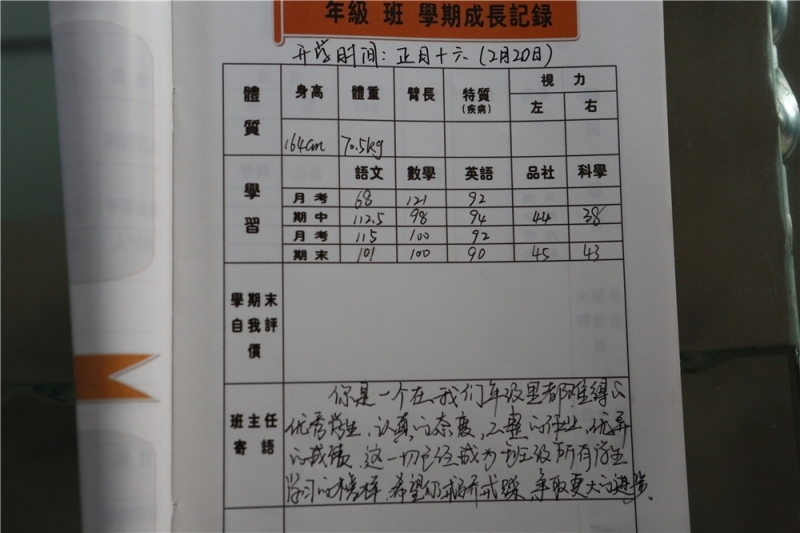 年級 班 學期成長記錄
开学时间：正月十六（2月20日）
體質 身高 體重 臂長 特質（疾病） 視力
左 右
164cm 70.5kg
學習 語文 數學 英語 品社 科學
月考 68 121 92
期中 112.5 98 94 44 38
月考 115 100 92
期末 101 100 90 45 43
學期末
自我評
價
班主任
寄語
你是一个在我们年级里都难得的
优秀学生，认真的态度，工整的作业，优异
的成绩，这一切已经成为班级所有学生
学习的榜样，希望你戒骄戒躁，争取更大的进步。